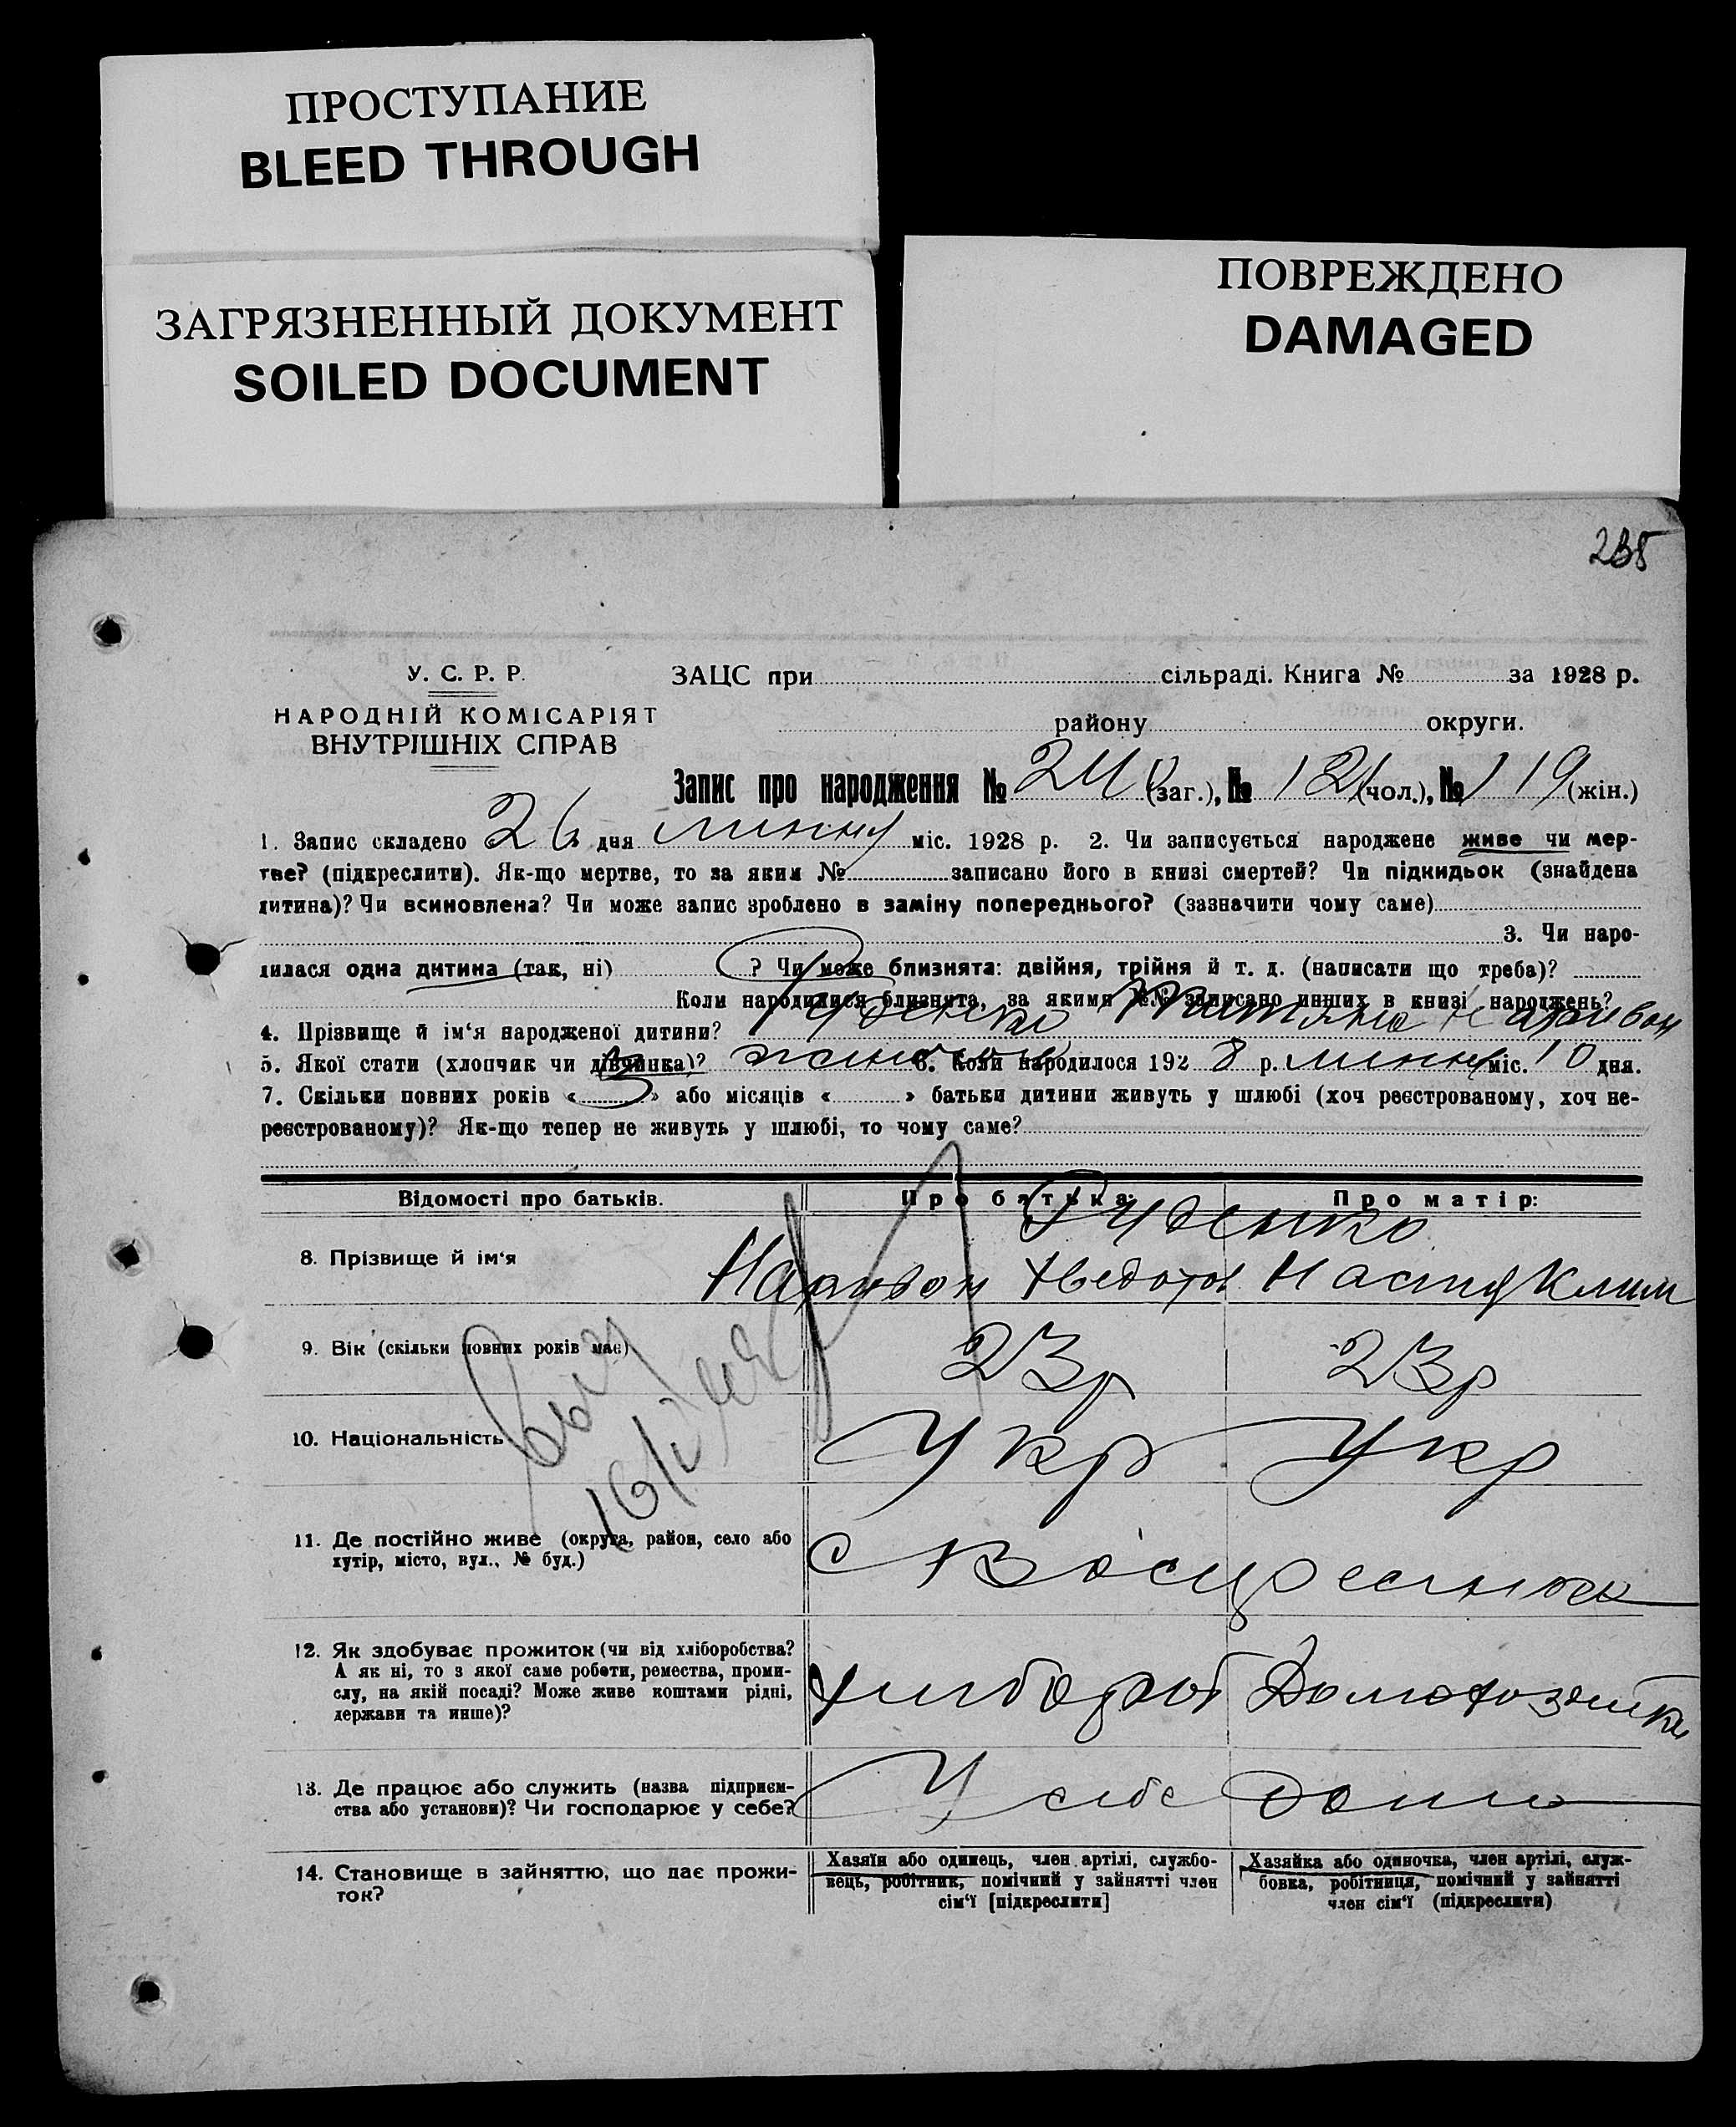 ПРОСТУПАНИЕ
BLEED THROUGH
ЗАГРЯЗНЕННЫЙ ДОКУМЕНТ
SOILED DOCUMENT
ПОВРЕЖДЕНО
DAMAGED
У. С. Р. Р.
НАРОДНІЙ КОМІСАРІЯТ
ВНУТРІШНІХ СПРАВ
ЗАЦС при сільраді. Книга № за 1928 р.
району округи.
Запис про народження № (заг.), № 121 (чол.), № 119 (жін.)
1. Запис складено 26 дня липня міс. 1928 р. 2. Чи записується народжене живе чи мер-
тве? (підкреслити). Як-що мертве, то за яким № записано його в книзі смертей? Чи підкидьок (знайдена
дитина)? Чи всиновлена? Чи може запис зроблено в заміну попереднього? (зазначити чому саме)
3. Чи наро-
дилася одна дитина (так, ні) ? Чи може близнята: двійня, трійня й т. д. (написати що треба)?
Коли народилися близнята, за якими №№ записано инших в книзі народжень?
4. Прізвище й ім'я народженої дитини? Руденко
5. Якої стати (хлопчик чи дівчинка)? жіноча 6. Коли народилося 1928 р. липня міс. 10 дня.
7. Скільки повних років « 3 » або місяців « » батьки дитини живуть у шлюбі (хоч реєстрованому, хоч не-
реєстрованому)? Як-що тепер не живуть у шлюбі, то чому саме?
Відомості про батьків. Про батька: Про матір:
Руденко
8. Прізвище й ім'я Федотов Настя Клим
9. Вік (скільки повних років має) 23р 23р
10. Національність Укр Укр
11. Де постійно живе (округа, район, село або
хутір, місто, вул., № буд.) с
12. Як здобуває прожиток (чи від хліборобства?
А як ні, то з якої саме роботи, ремества, проми-
слу, на якій посаді? Може живе коштами рідні,
держави та инше)? хлибороб Домохозяйка
13. Де працює або служить (назва підприєм-
ства або установи)? Чи господарює у себе? У себе дома
14. Становище в зайняттю, що дає прожи-
ток?
Хазяїн або одинець, член артілі, службо-
вець, робітник, помічний у зайнятті член
сім'ї [підкреслити]
Хазяйка або одиночка, член артілі, служ-
бовка, робітниця, помічний у зайнятті
член сім'ї (підкреслити)